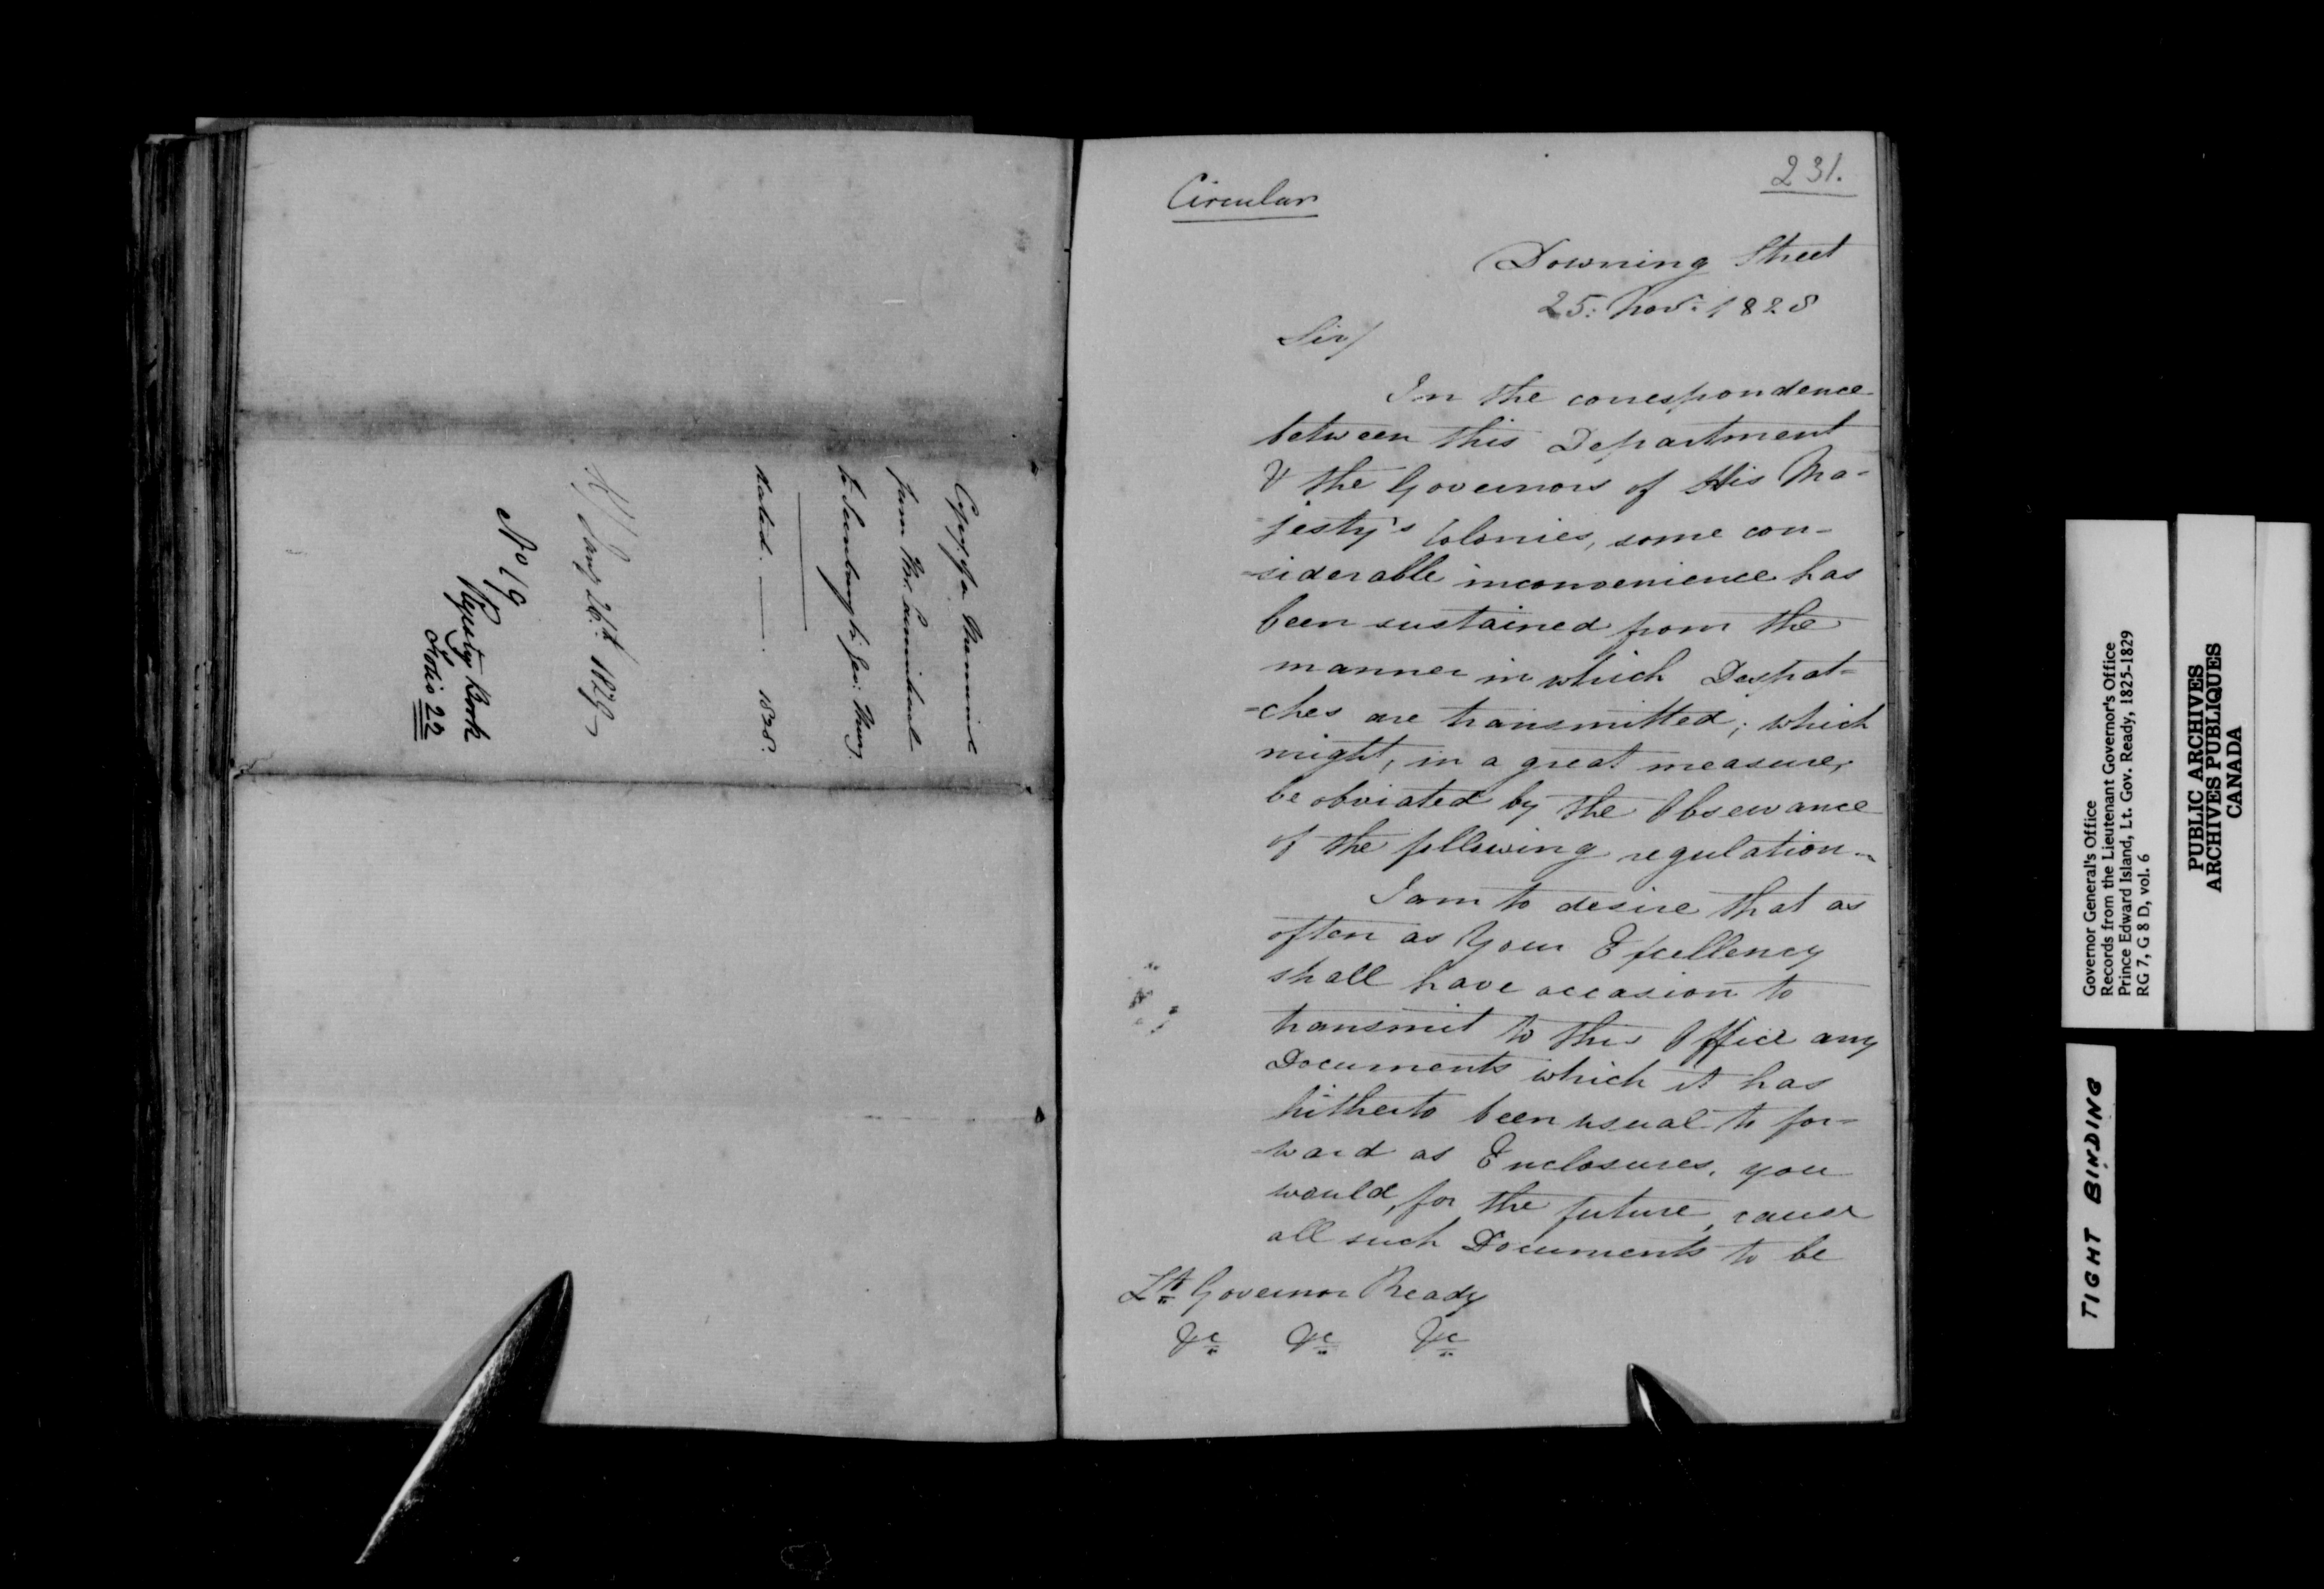 Copy of a
from Mr.
to Sir George Murray
dated. 1828.
R/ Jany 26th 1829
No 19
Registry Book
Folio 22
231.
Circular
Downing Street
25: Novr: 1828
Sir/
In the correspondence
between this Department
& the Governors of His Ma-
jesty's Colonies, some con-
-siderable inconvenience has
been sustained from the
manner in which Despat-
-ches are transmitted; which
might, in a great measure,
be obviated by the Observance
of the following regulation.
I am to desire that as
often as Your Excellency
shall have occasion to
transmit to this Office any
Documents which it has
hitherto been usual to for-
-ward as Enclosures, you
would, for the future, cause
all such Documents to be
Lt Governor Ready
&c &c &c
Governor General's Office
Records from the Lieutenant Governor's Office
Prince Edward Island, Lt. Gov. Ready, 1825-1829
RG 7, G 8 D, vol. 6
PUBLIC ARCHIVES
ARCHIVES PUBLIQUES
CANADA
TIGHT BINDING